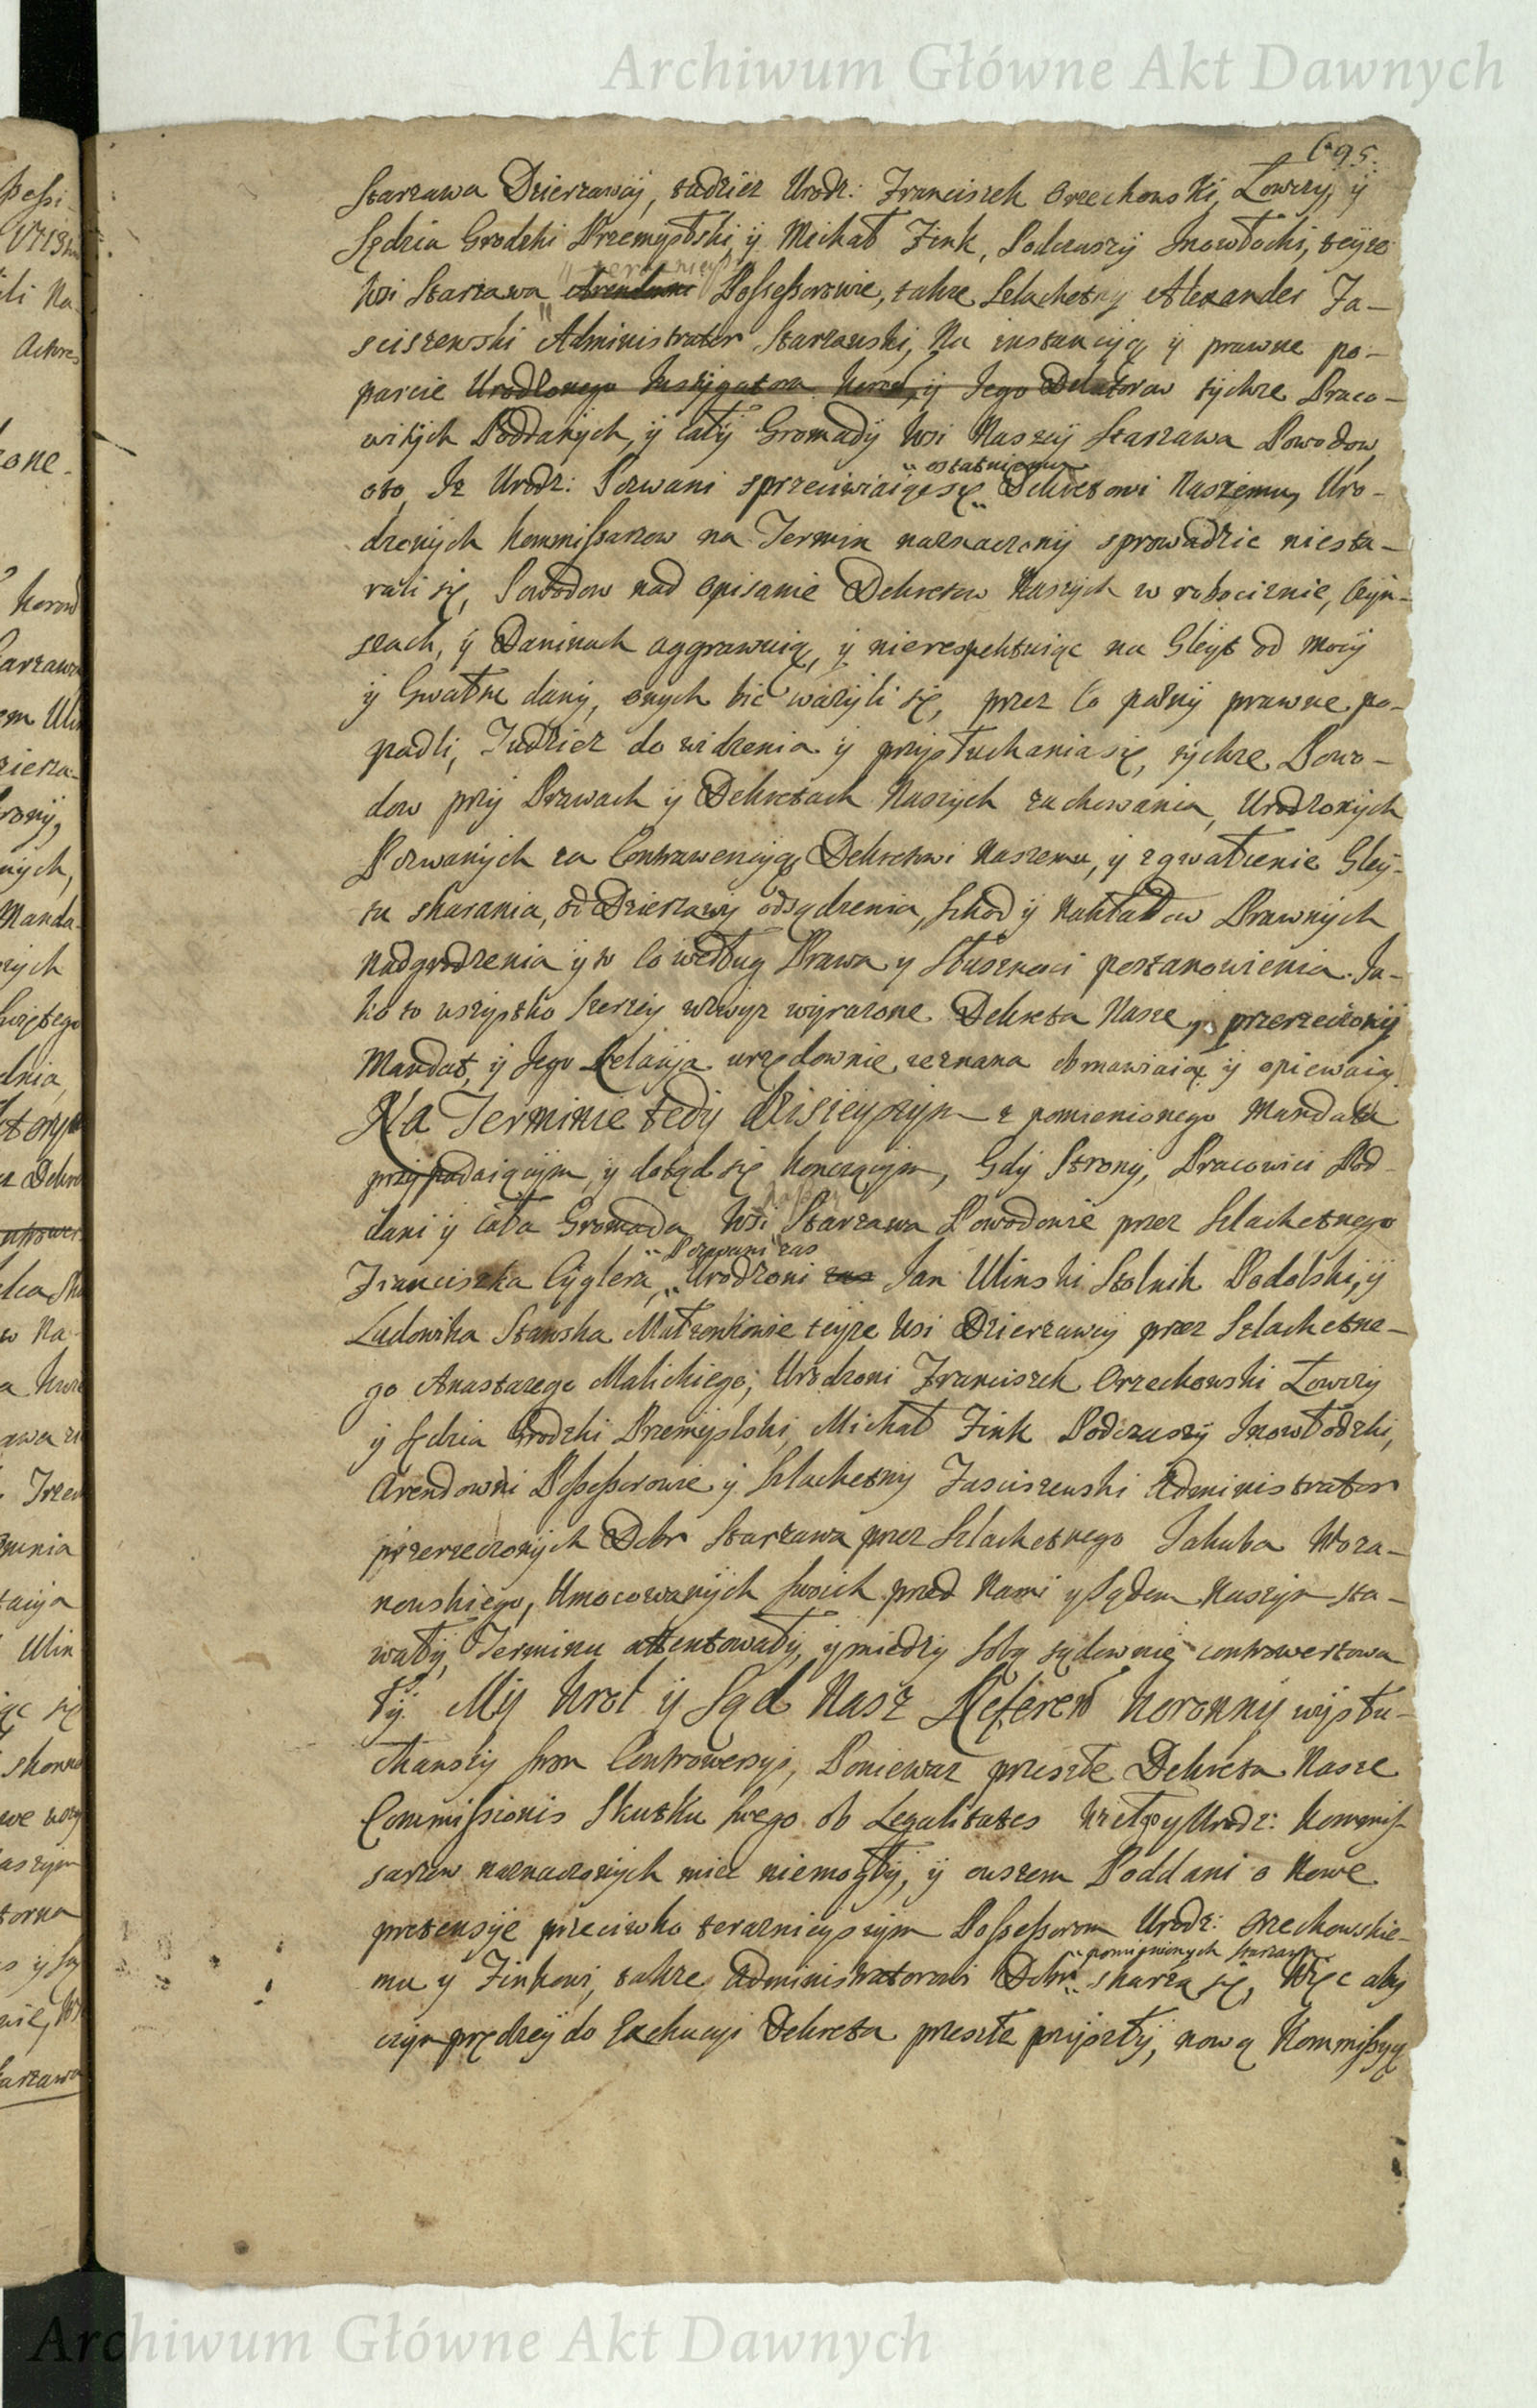 Archiwum Główne Akt Dawnych
695.
Starzawa Dzierzawcy, tudziez Urodz: Franciszek Orzechowski, Łowczy, y
Sędzia Grodzki Przemyslski, y Michał Fink, Podczaszy Inowłocki, teyze
Wsi Starzawa Arendowni Possessorowie, takze Szlachetny Alexander Ja-
sciszewski Administrator Starzawski, Na instancyią y prawne po-
parcie Urodzonego Instygatora Koron, y Jego Delatorow tychze Praco-
witych Poddanych, y cały Gromady Wsi Naszey Starzawa Powodow,
oto, Iz Urodz: Pozwani sprzeciwiaiąc się
ostatniemu
Dekretowi Naszemu, Uro-
dzonych Kommissarzow na Termin naznaczony sprowadzic niesta-
rali się, Powodow nad opisanie Dekretow Naszych w robociznie, Czyn-
szach, y Daninach aggrawuią, y nierespektuiąc na Gleyt od mocy
y Gwałtu dany, onych bić wazyli się, przez Co pœny prawne po-
padli, Tudziez do widzenia y przysłuchania się, tychze Powo-
dow przy Prawach y Dekretach Naszych zachowania, Urodzonych
Pozwanych za Contrawencyią Dekretowi Naszemu, y zgwałcenie Gley-
tu skarania, od Dzierzawy odsądzenia, szkod y Nakładow Prawnych
nadgrodzenia y w Co według Prawa y Słuszności postanowienia. Ja-
ko to wszystko szerzey wzwyz wyrazone Dekreta Nasze, y przerzeczony
Mandat, y Jego Relacyja urzędownie zeznana obmawiaią y opiewaią.
Na Terminie tedy dzisieyszym z pomienionego Mandatu
przypadaiącym, y dotąd się konczącym, Gdy Strony, Pracowici Pod-
dani y cała Gromada Wsi Starzawa Powodowie przez Szlachetnego
Franciszka Cyglera,
Pozwani zas
Urodzoni zas Jan Ulinski Stolnik Podolski, y
Ludowika Stawska Małzonkowie teyze Wsi Dzierzawcy przez Szlachetne-
go Anastazego Malickiego, Urodzoni Franciszek Orzechowski Łowczy
y Sędzia Grodzki Przemyslski, Michał Fink Podczaszy Inowłodzki,
Arendowni Possessorowie y Szlachetny Jasciszewski Administrator
przerzeczonych Dobr Starzawa przez Szlachetnego Jakuba Woza-
nowskiego, Umocowanych swoich przed Nami y Sądem Naszym sta-
wały, Terminu attentowały, y miedzy sobą sądownie controwertowa-
ły. My Krol y Sąd Nasz Referen Koronny wysłu-
chawszy stron Controwersyi, Poniewaz przeszłe Dekreta Nasze
Commissionis Skutku swego ob Legalitates Urodz: Kommis-
sarzow naznaczonych miec niemogły, y owszem Poddani o Nowe
pretensye przeciwko teraznieyszym Possessorom Urodz: Orzechowskie-
mu y Finkowi, takze Administratorowi Dobr
pomienionych Starzawa
skarzą się, Więc aby
czym prędzey do Exekucyi Dekreta przeszłe przyszły, nową Kommissyą
Archiwum Główne Akt Dawnych